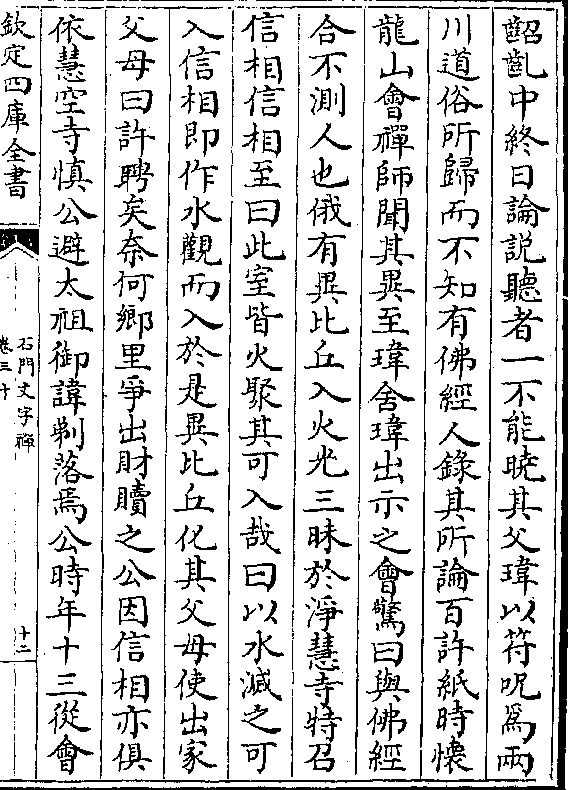 齠齔中終日論說聽者一不能曉其父瑋以符呪爲兩
川道俗所歸而不知有佛經人錄其所論百許紙時懷
龍山會禪師聞其異至瑋舍瑋出示之會驚曰與佛經
合不測人也俄有異比丘入火光三昧於淨慧寺特召
信相信相至曰此室皆火聚其可入哉曰以水滅之可
入信相即作水觀而入於是異比丘化其父母使出家
父母曰許聘矣奈何鄉里爭出財贖之公因信相亦俱
依慧空寺慎公避太祖御諱剃落焉公時年十三從會
欽定四庫全書
石門文字禪
卷三十
十二